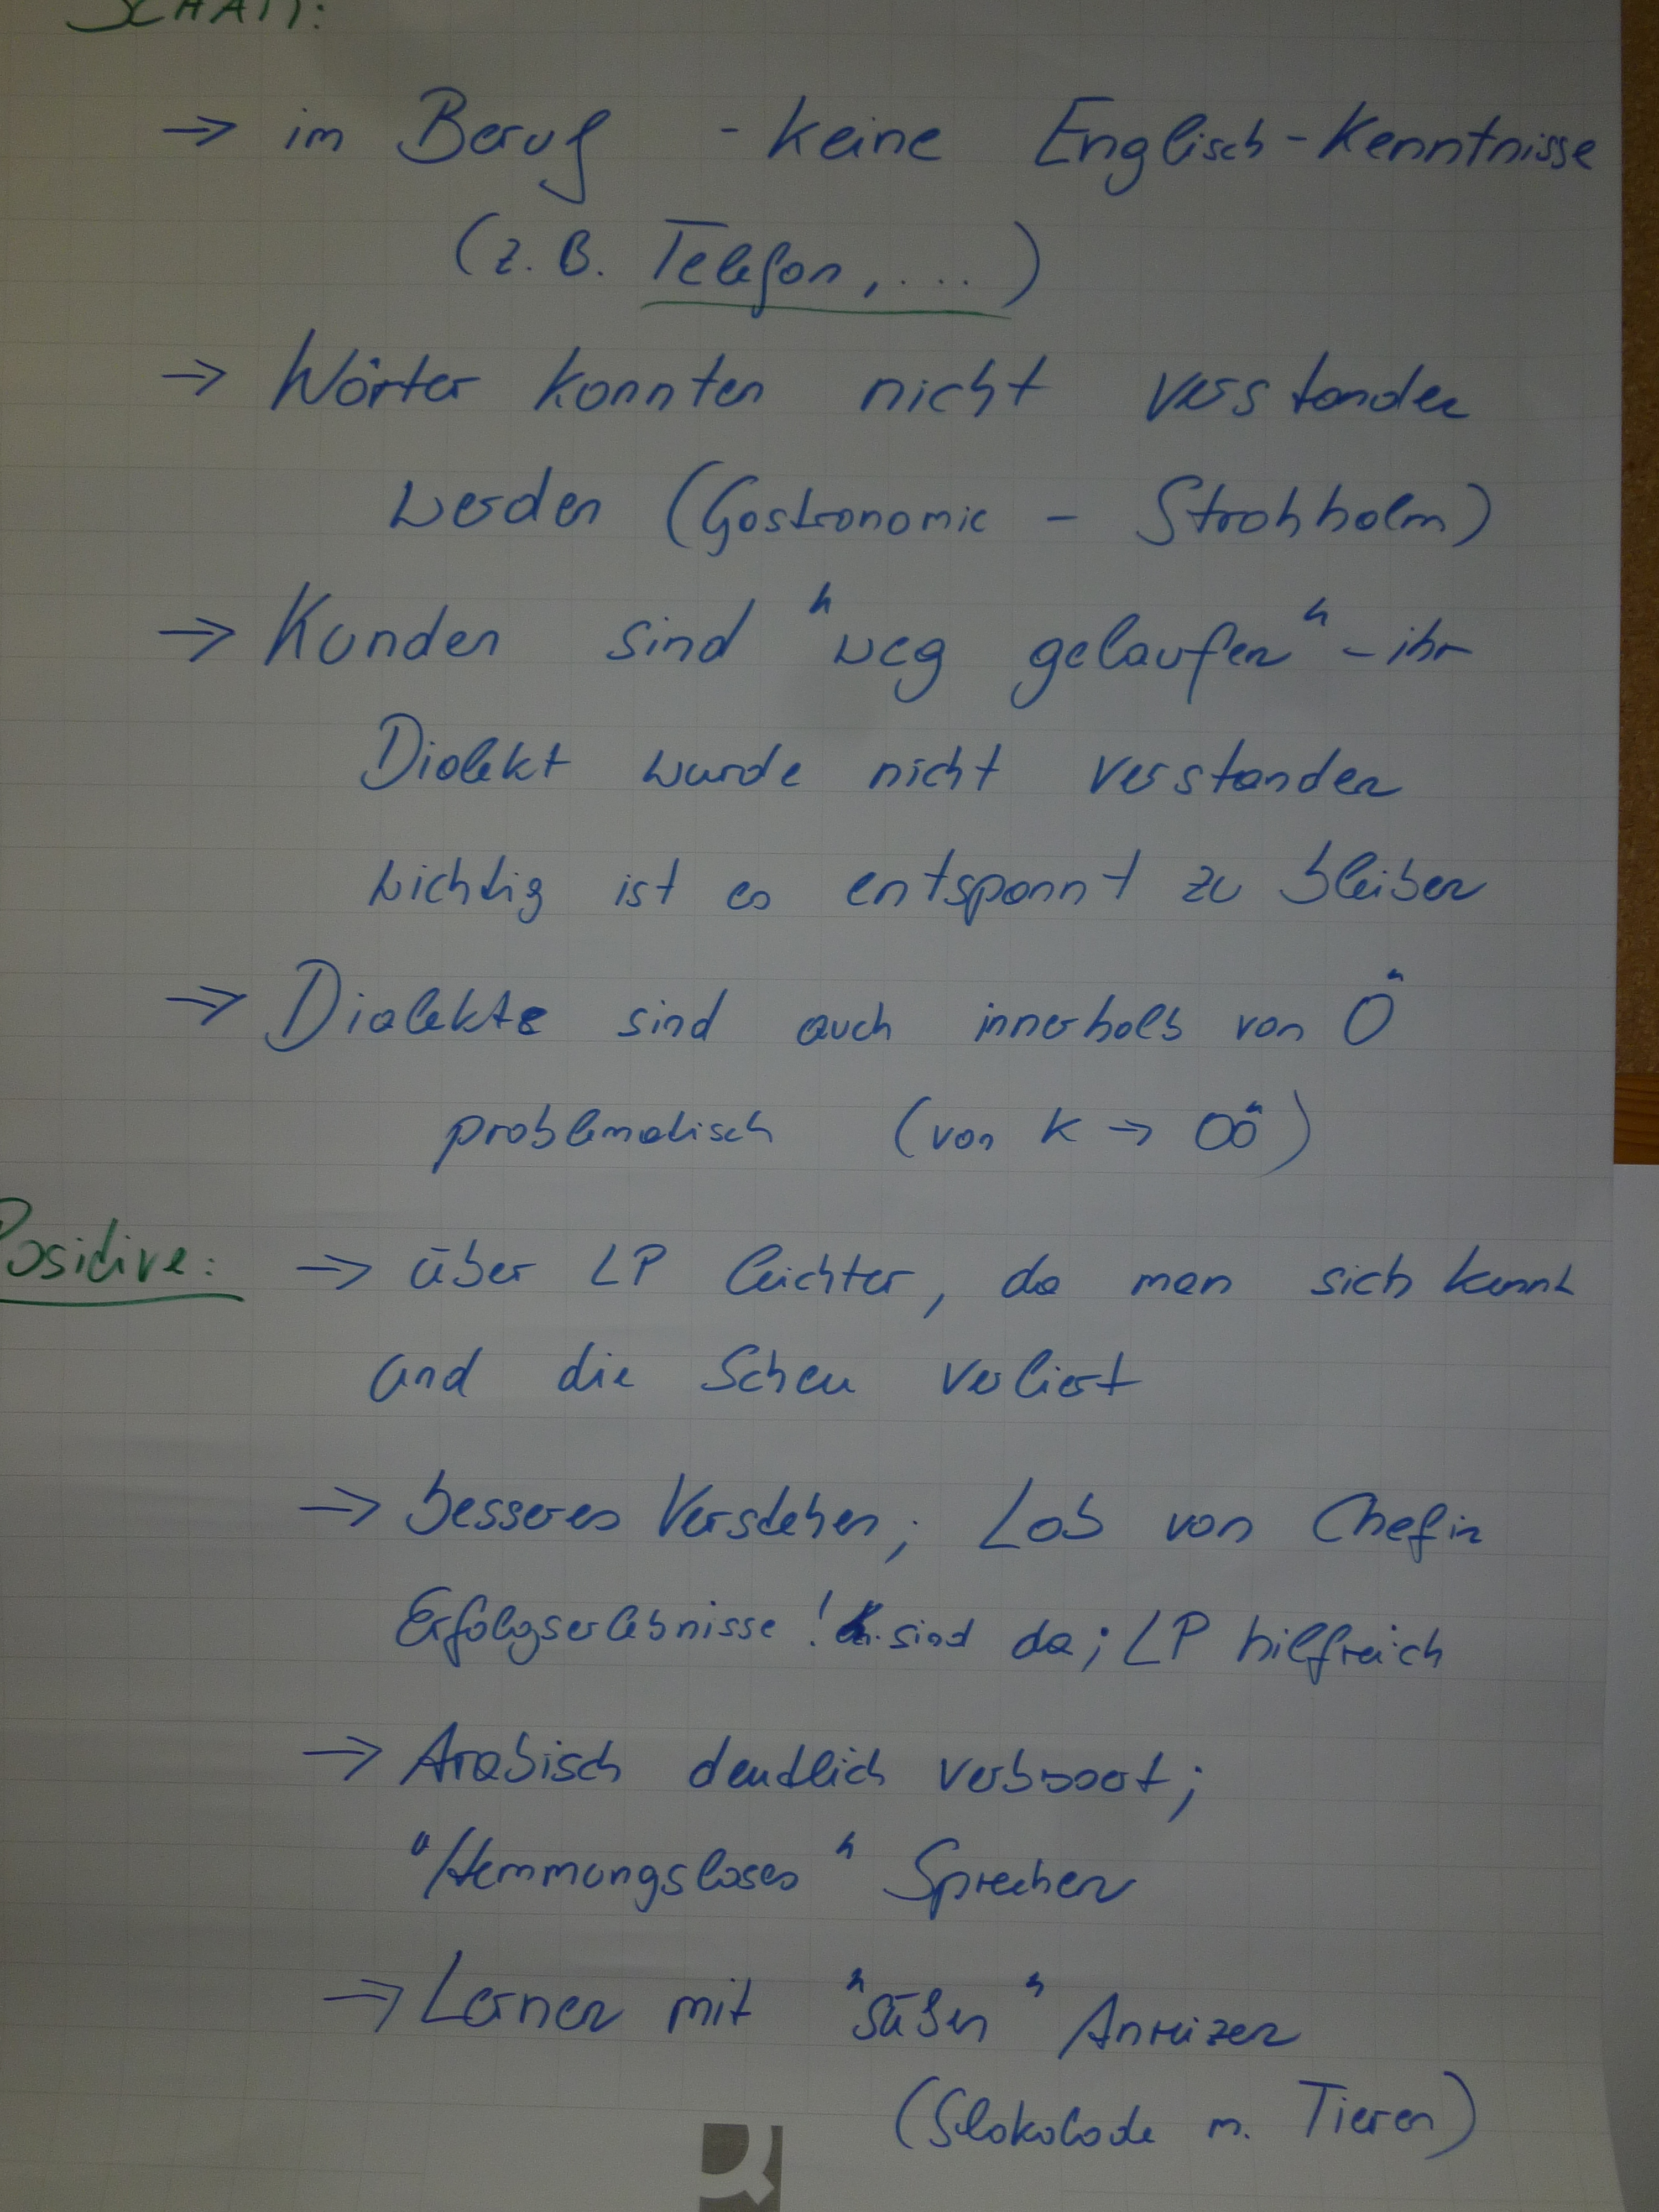 SCHATT:
→ im Beruf - keine Englisch-Kenntnisse
(z.B. Telefon, ....)
→ Wörter konnten nicht verstanden
werden (Gastronomie - Strohhalm)
→ Kunden sind "weg gelaufen" - ihr
Dialekt wurde nicht verstanden
wichtig ist es entspannt zu bleiben
→ Dialekte sind auch innerhalb von Ö
problematisch (von K → OÖ)
Positive: → über LP leichter, da man sich kennt
und die Scheu verliert
→ besseres Verstehen; Lob von Chefin
Erfolgserlebnisse! sind da; LP hilfreich
→ Arabisch deutlich verbssert;
"Hemmungsloses" Sprechen
→ Lernen mit "süßen" Anreizen
(Slokolade m. Tieren)